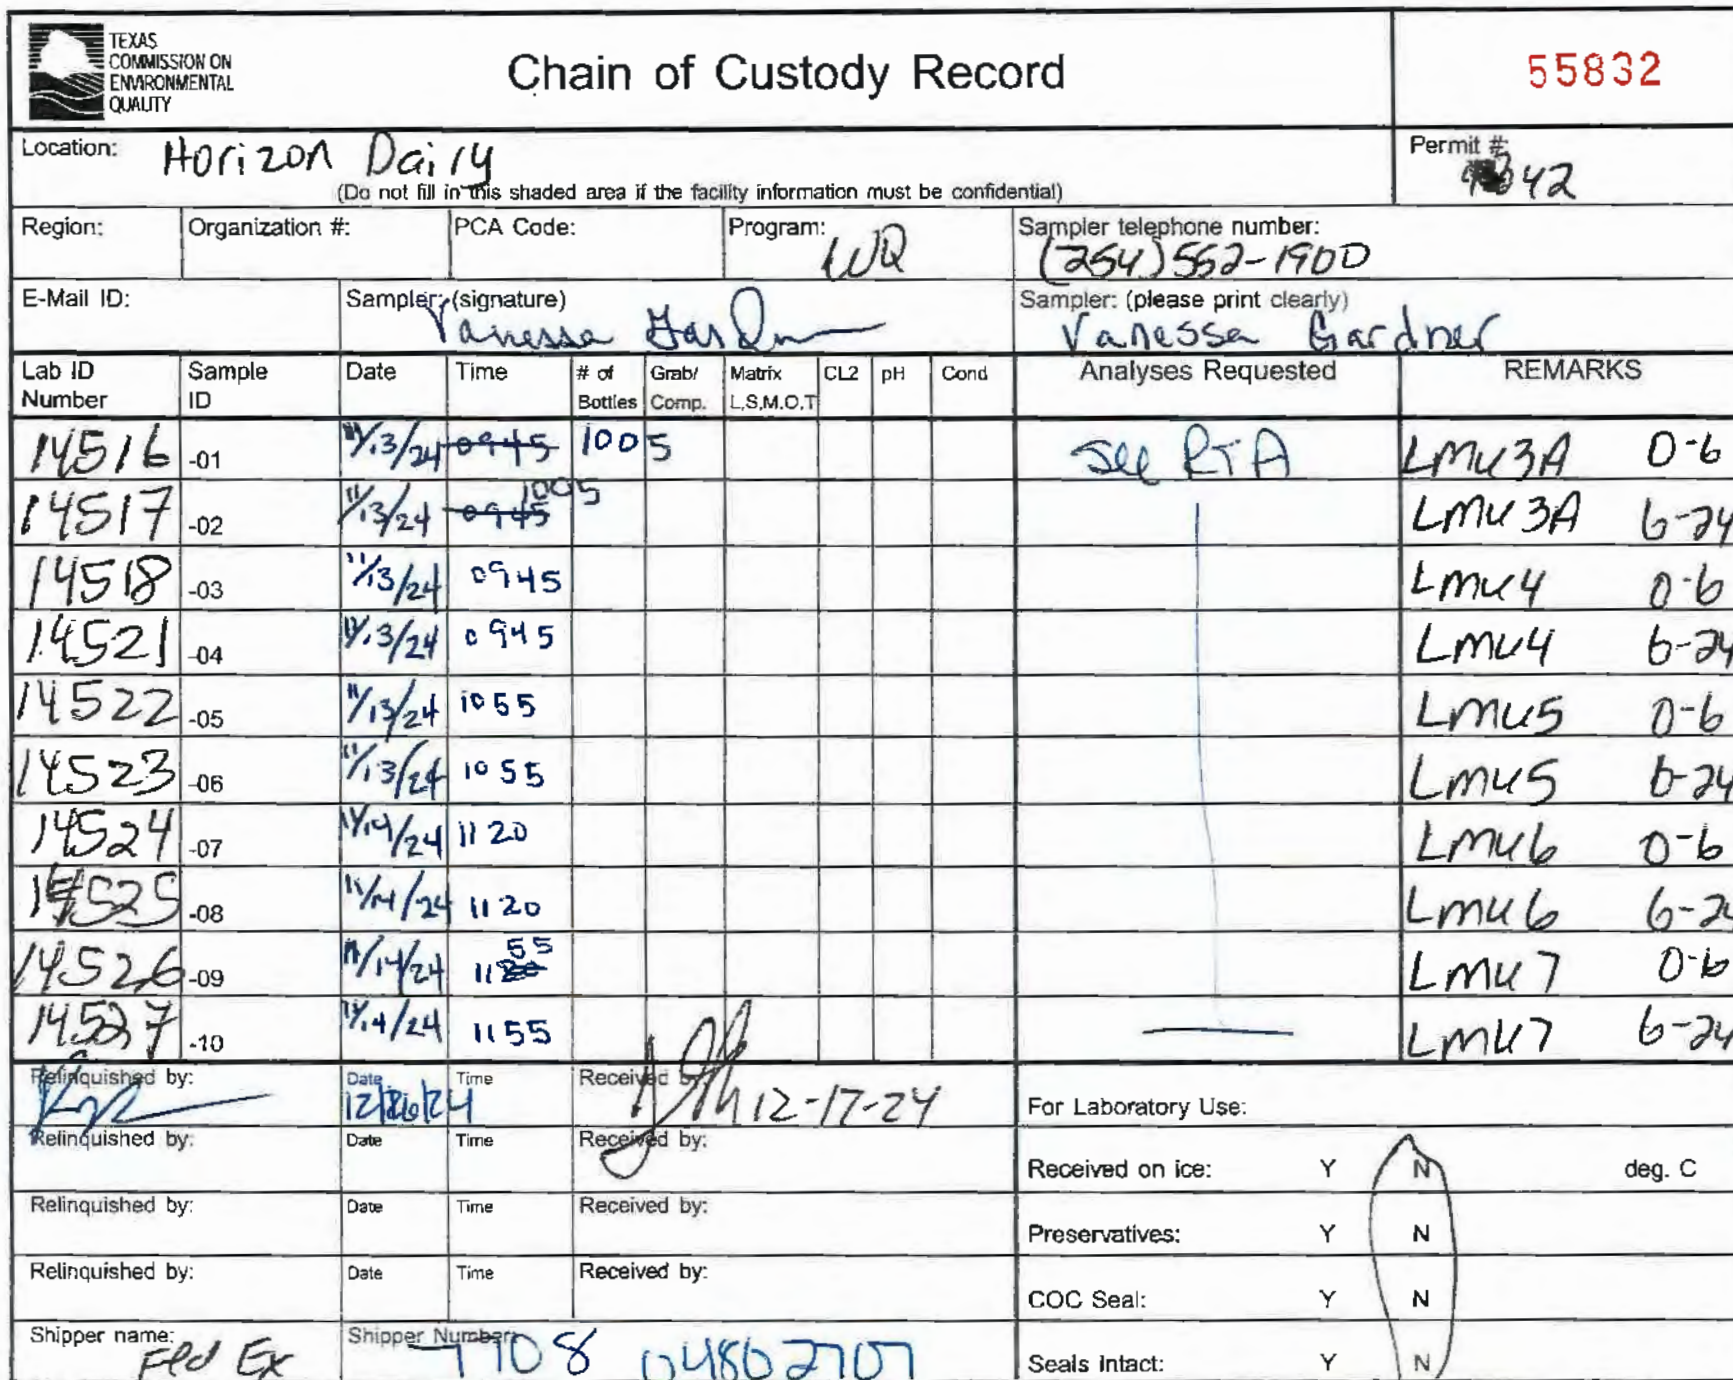 TEXAS
COMMISSION ON
ENVIRONMENTAL
QUALITY
Chain of Custody Record
55832
Location: Horizon Dairy
(Do not fill in this shaded area if the facility information must be confidential)
Permit #: 42
Region: Organization #: PCA Code: Program: WQ Sampler telephone number: (254) 552-1900
E-Mail ID: Sampler: (signature) Vanessa Gardner Sampler: (please print clearly) Vanessa Gardner
Lab ID Number Sample ID Date Time # of Bottles Grab/ Comp. Matrix L,S,M,O,T CL2 pH Cond Analyses Requested REMARKS
14516 -01 11/13/24 0945 1005 See RTA LMU3A 0-6
14517 -02 11/13/24 0945 1005 LMU3A 6-24
14518 -03 11/13/24 0945 LMU4 0-6
14521 -04 11/13/24 0945 LMU4 6-24
14522 -05 11/13/24 1055 LMU5 0-6
14523 -06 11/13/24 1055 LMU5 6-24
14524 -07 11/14/24 1120 LMU6 0-6
14525 -08 11/14/24 1120 LMU6 6-24
14526 -09 11/14/24 1155 LMU7 0-6
14527 -10 11/14/24 1155 LMU7 6-24
Relinquished by: Date Time Received by: 12-17-24 For Laboratory Use:
Relinquished by: Date Time Received by: Received on ice: Y N deg. C
Relinquished by: Date Time Received by: Preservatives: Y N
Relinquished by: Date Time Received by: COC Seal: Y N
Shipper name: Fed Ex Shipper Number: 7708 04802707 Seals intact: Y N